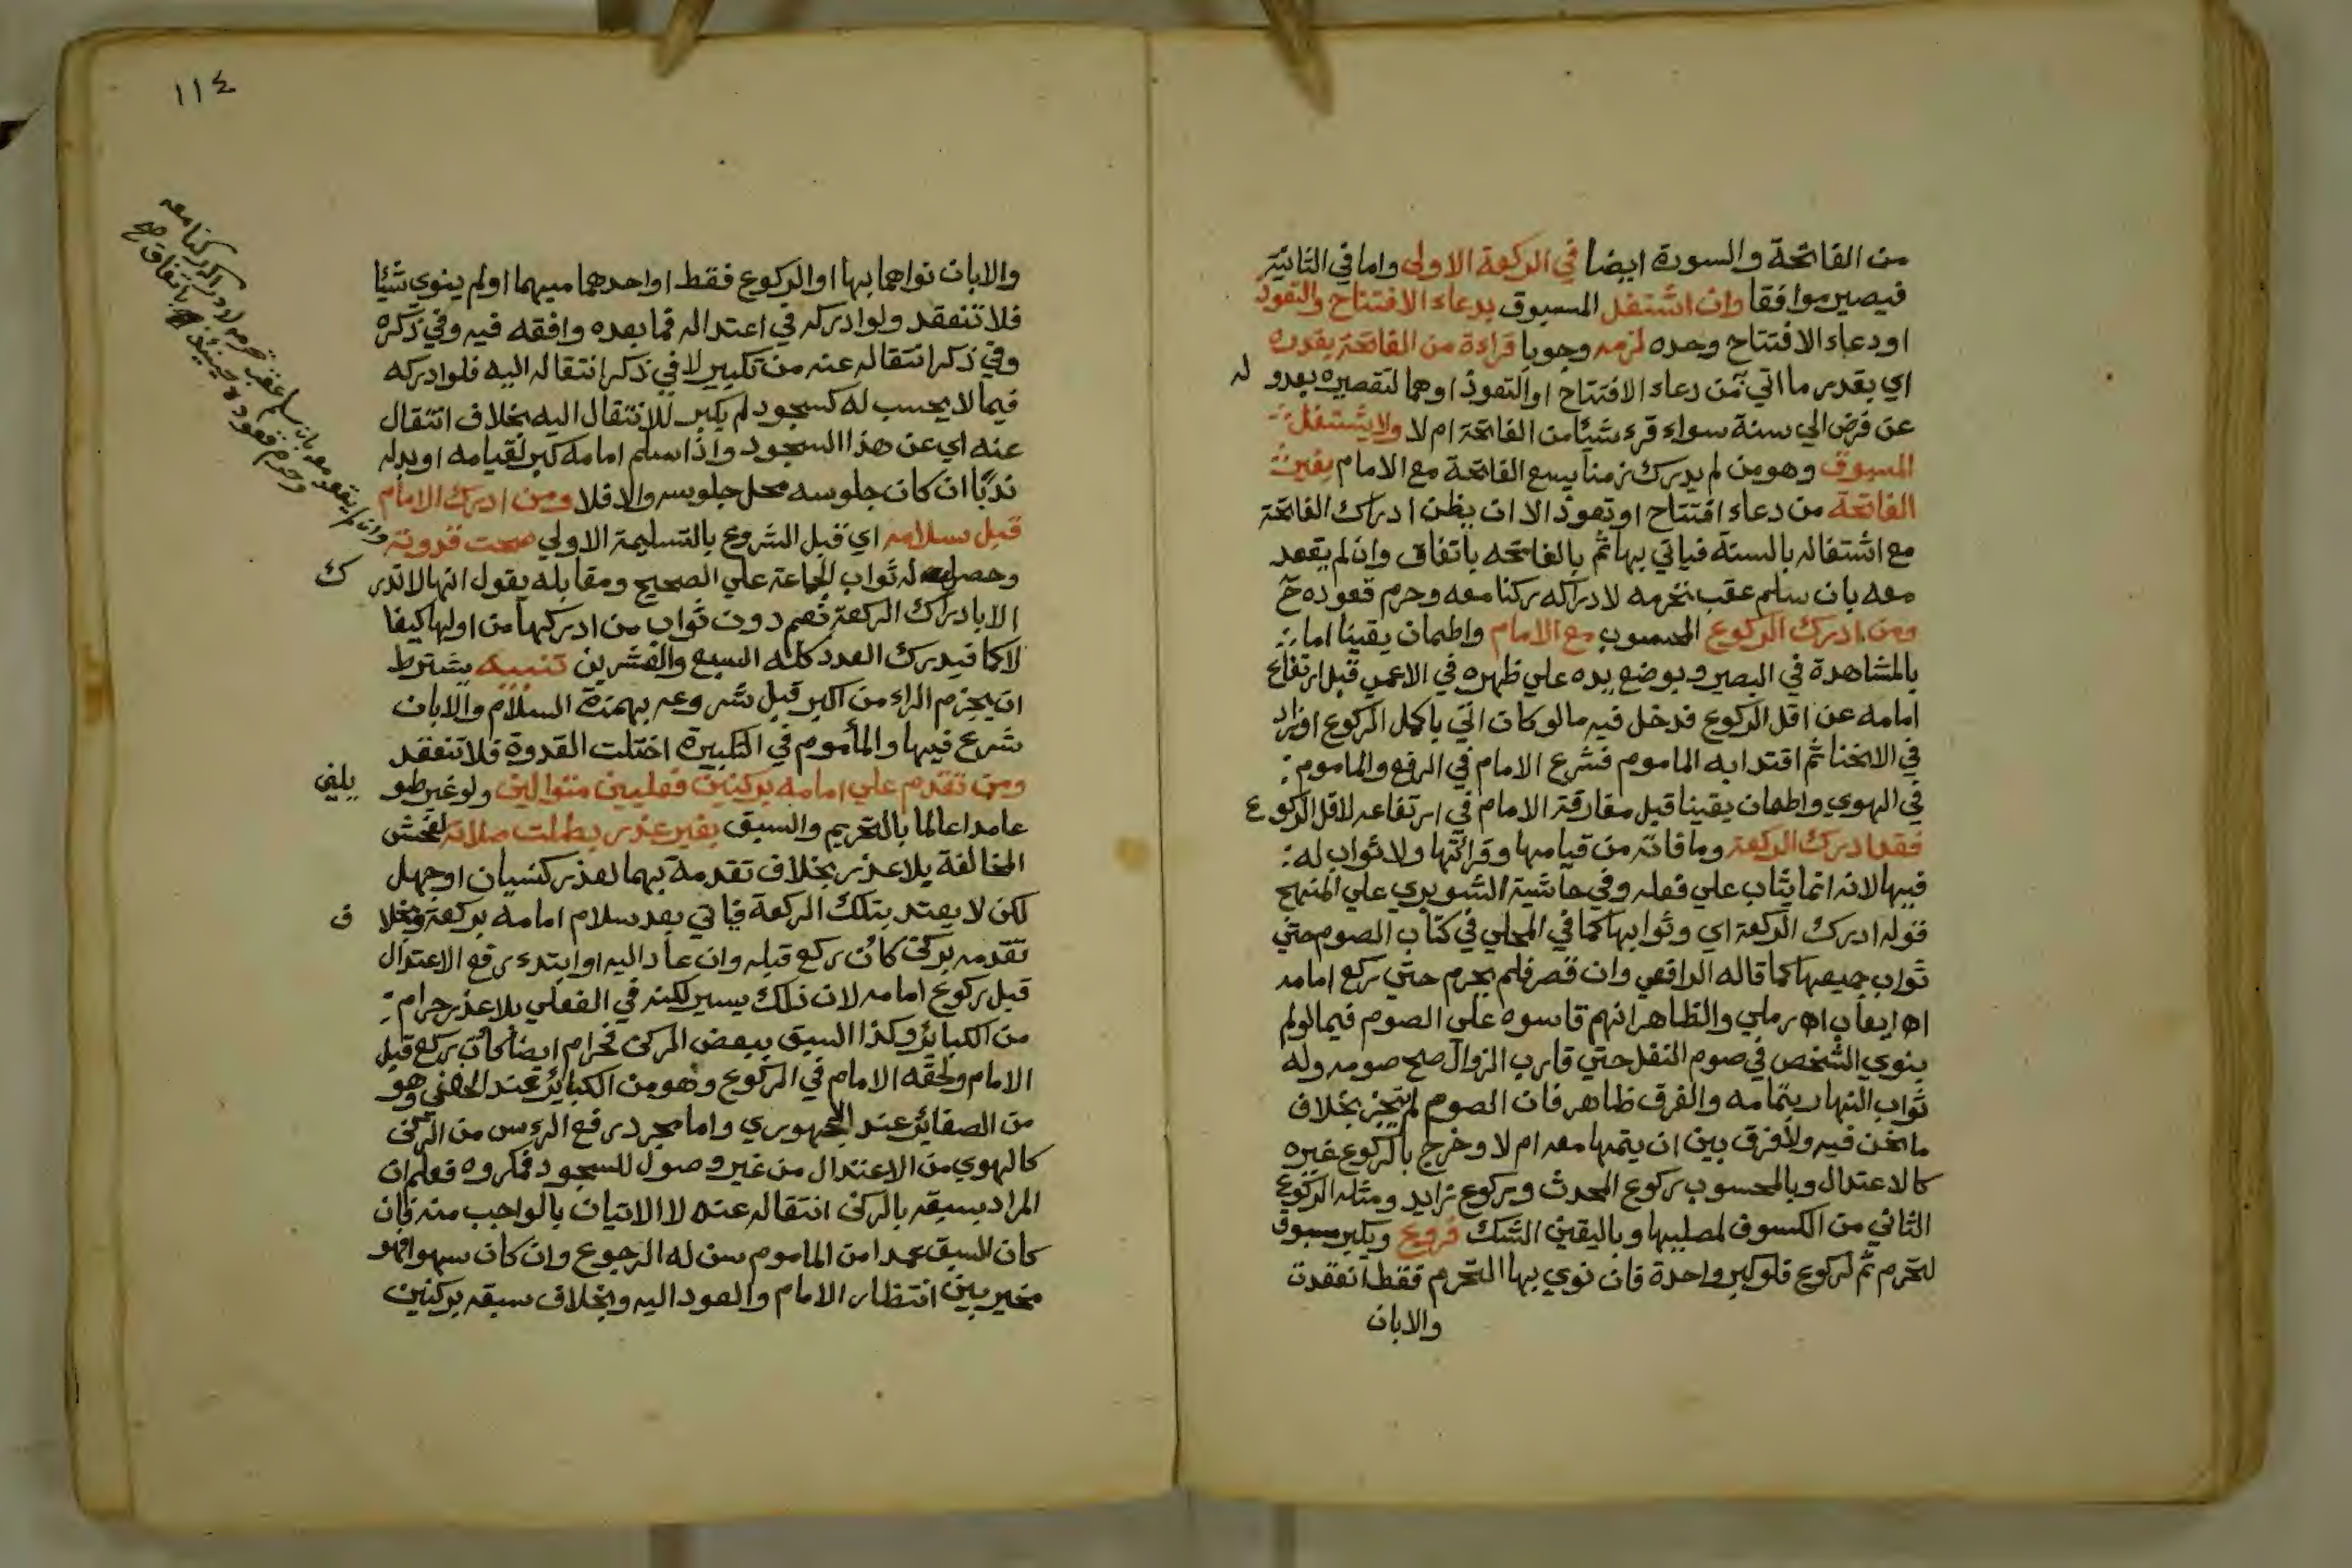 من الفاتحة والسورة ايضا في الركعة الاولي واما في الثانية
فيصير موافقا وان اشتغل المسبوق بدعاء الافتتاح والتعوذ
او دعاء الافتتاح وحده لزمه وجوبا قراءة من الفاتحة بقدره
اي بقدر ما اتي من دعاء الافتتاح او التعوذ او هما لتقصيره بعدو له
عن فرض الي سنة سواء قرء شيئا من الفاتحة ام لا ولا يشتغل
المسبوق وهو من لم يدرك زمنا يسع الفاتحة مع الامام بغير
الفاتحة من دعاء افتتاح او تعوذ الا ان يظن ادراك الفاتحة
مع اشتغاله بالسنة فياتي بها ثم بالفاتحه باتفاق وان لم يقعد
معه بان سلم عقب تحرمه لادراكه ركنا معه وحرم قعوده ح
ومن ادرك الركوع المحسوب مع الامام واطمان يقينا اما
بالمشاهدة في البصير وبوضع يده علي ظهره في الاعمي قبل ارتفاع
امامه عن اقل الركوع فدخل فيه ما لو كان اتي باكمل الركوع او زاد
في الانحنا ثم اقتدا به الماموم فشرع الامام في الرفع والماموم
في الهوي واطمان يقينا قبل مفارقة الامام في ارتفاعه لاقل الركوع
فقد ادرك الركعة وما فاته من قيامها وقرائتها ولا ثواب له
فيها لانه انما يثاب علي فعله وفي حاشية الشوبري علي المنهج
قوله ادرك الركعة اي وثوابها كما في المحلي في كتاب الصوم حتي
ثواب جميعها كما قاله الرافعي وان قصر فلم يحرم حتي ركع امامه
اه ايعاب اه رملي والظاهر انهم قاسوه علي الصوم فيما لو لم
ينوي الشخص في صوم النفل حتي قارب الزوال صح صومه وله
ثواب النهار بتمامه والفرق ظاهر فان الصوم لم يتجز بخلاف
ما نحن فيه ولا فرق بين ان يتمها معه ام لا وخرج بالركوع غيره
كالاعتدال وبالمحسوب ركوع المحدث وركوع زايد ومثله الركوع
الثاني من الكسوف لمصليها وباليقين الشك فروع ويكبر مسبوق
لتحرم ثم لركوع فلو كبر واحدة فان نوي بها التحرم فقط انعقدت
والابان
١١٤
والابان نواهما بها او الركوع فقط او احدهما مبهما او لم ينوي شيئا
فلا تنعقد ولو ادركه في اعتداله فما بعده وافقه فيه وفي ذكره
وفي ذكر انتقاله عنه من تكبير لا في ذكر انتقاله اليه فلو ادركه
فيما لا يحسب له كسجود لم يكبر للانتقال اليه بخلاف انتقال
عنه اي عن هذا السجود واذا سلم امامه كبر لقيامه او بدله
ندبا ان كان جلوسه محل جلوسه والا فلا ومن ادرك الامام
قبل سلامه اي قبل الشروع بالتسليمة الاولي صحت قدوته
وحصل له ثواب الجماعة علي الصحيح ومقابله يقول انها لا تدر ك
الا بادراك الركعة نعم دون ثواب من ادركها من اولها كيفا
لا كما فيدرك العدد كله السبع والعشرين تنبيه يشترط
ان يجزم الراء من اكبر قبل شروعه بهمزة السلام والابان
شرع فيها والمأموم في التكبيرة اختلت القدوة فلا تنعقد
ومن تقدم علي امامه بركنين فعليين متواليين ولو غير طو يلين
عامدا عالما بالتحريم والسبق بغير عذر بطلت صلاته لفحش
المخالفة بلا عذر بخلاف تقدمه بهما لعذر كنسيان او جهل
لكن لا يعتد بتلك الركعة فياتي بعد سلام امامه بركعة وبخلا ف
تقدمه بركن كان ركع قبله وان عاد اليه او ابتدء رفع الاعتدال
قبل ركوع امامه لان ذلك يسير لكنه في الفعلي بلا عذر حرام
من الكبائر وكذا السبق ببعض الركن فحرام ايضا كان ركع قبل
الامام ولحقه الامام في الركوع وهو من الكبائر عند الحفني وهو
من الصغائر عند الجهوري واما مجرد رفع الرءس من الركن
كالهوي من الاعتدال من غير وصول للسجود فمكروه فعلم ان
المراد بسبقه بالركن انتقاله عنه لا الاتيان بالواجب منه فان
كان السبق عمدا من الماموم سن له الرجوع وان كان سهوا فهو
مخير بين انتظار الامام والعود اليه وبخلاف سبقه بركنين
وان لم يقعد معه بان سلم عقب تحرمه لادراكه ركنا معه
وحرم قعوده حينئذ باتفاق صح